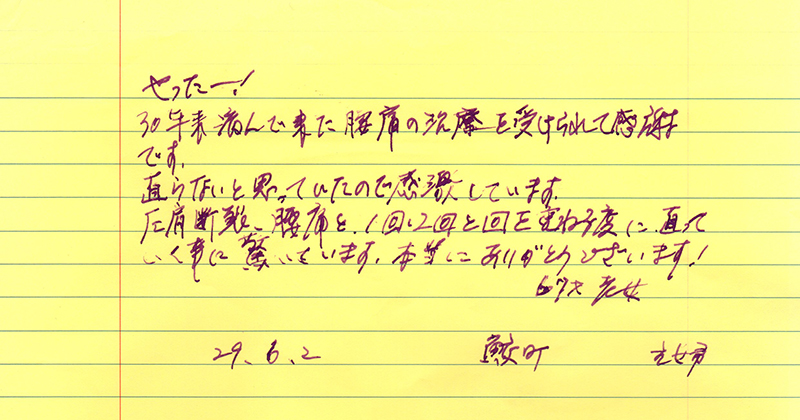 やったー!
30年来病んで来た腰痛の治療を受けられて感謝
です。
直らないと思っていたので感激しています。
腰痛と、1回、2回と回を重ねる度に直って
いく事に驚いています。本当にありがとうございます!
67才 老女
29.6.2 鮫町 主婦